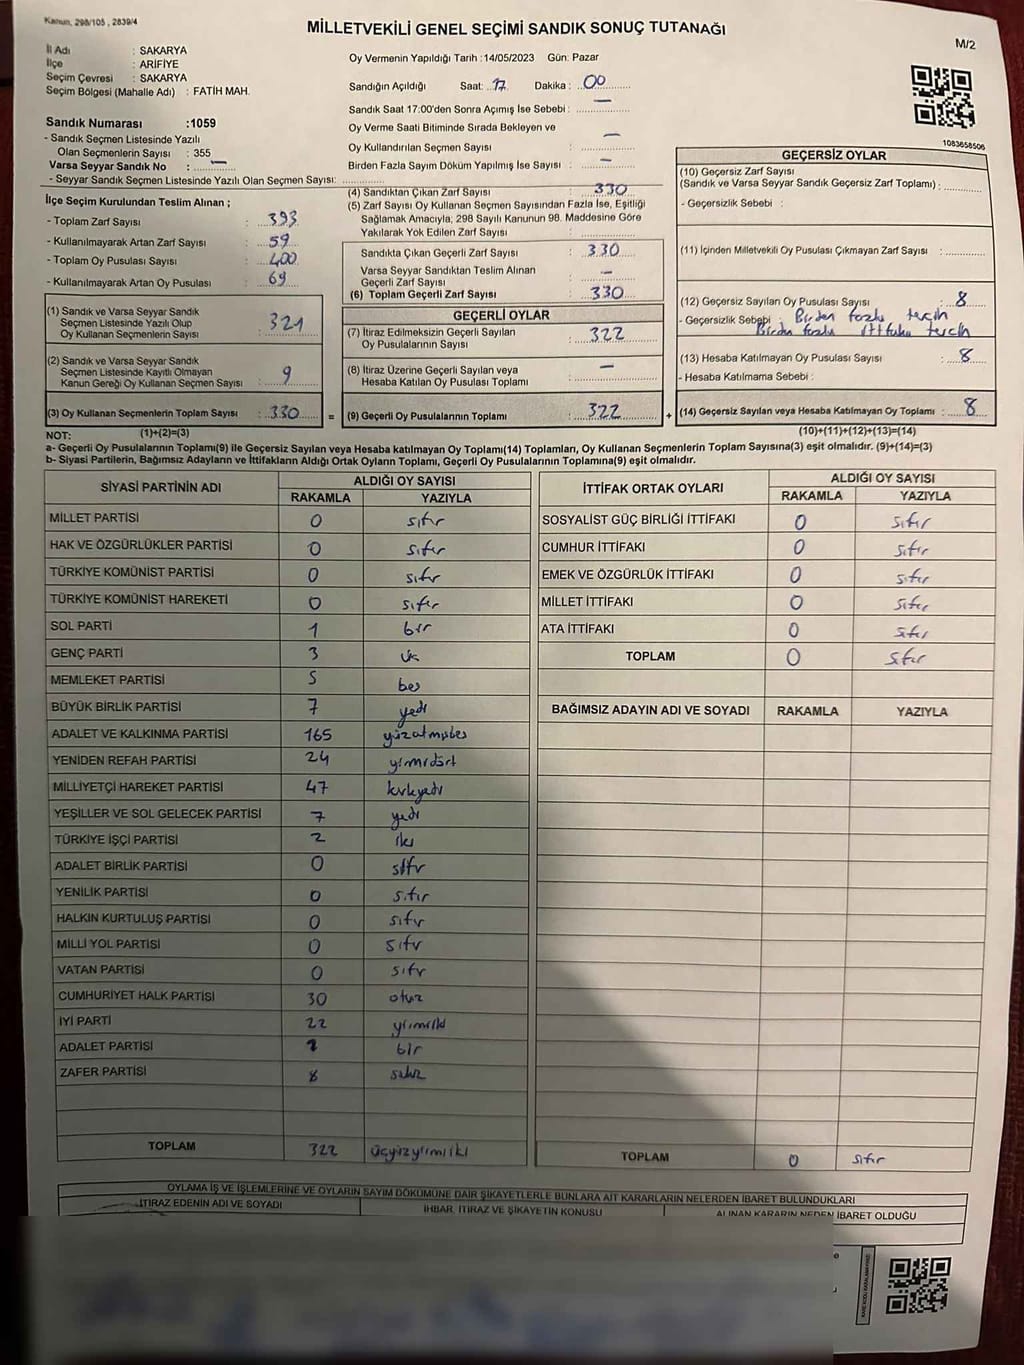 Kanun, 298/105, 2839/4
MİLLETVEKİLİ GENEL SEÇİMİ SANDIK SONUÇ TUTANAĞI
M/2
İl Adı : SAKARYA
İlçe : ARİFİYE
Seçim Çevresi : SAKARYA
Seçim Bölgesi (Mahalle Adı) : FATİH MAH.
Sandık Numarası :1059
- Sandık Seçmen Listesinde Yazılı
Olan Seçmenlerin Sayısı : 355
Varsa Seyyar Sandık No : —
- Seyyar Sandık Seçmen Listesinde Yazılı Olan Seçmen Sayısı:
İlçe Seçim Kurulundan Teslim Alınan ;
- Toplam Zarf Sayısı : 393
- Kullanılmayarak Artan Zarf Sayısı : 59
- Toplam Oy Pusulası Sayısı : 400
- Kullanılmayarak Artan Oy Pusulası : 69
(1) Sandık ve Varsa Seyyar Sandık
Seçmen Listesinde Yazılı Olup
Oy Kullanan Seçmenlerin Sayısı : 321
(2) Sandık ve Varsa Seyyar Sandık
Seçmen Listesinde Kayıtlı Olmayan
Kanun Gereği Oy Kullanan Seçmen Sayısı : 9
(3) Oy Kullanan Seçmenlerin Toplam Sayısı : 330 =
(1)+(2)=(3)
Oy Vermenin Yapıldığı Tarih :14/05/2023 Gün: Pazar
Sandığın Açıldığı Saat: 17 Dakika : 00
Sandık Saat 17:00'den Sonra Açımış İse Sebebi : —
Oy Verme Saati Bitiminde Sırada Bekleyen ve
Oy Kullandırılan Seçmen Sayısı : —
Birden Fazla Sayım Döküm Yapılmış İse Sayısı : —
(4) Sandıktan Çıkan Zarf Sayısı : 330
(5) Zarf Sayısı Oy Kullanan Seçmen Sayısından Fazla İse, Eşitliği
Sağlamak Amacıyla, 298 Sayılı Kanunun 98. Maddesine Göre
Yakılarak Yok Edilen Zarf Sayısı :
Sandıkta Çıkan Geçerli Zarf Sayısı : 330
Varsa Seyyar Sandıktan Teslim Alınan
Geçerli Zarf Sayısı : —
(6) Toplam Geçerli Zarf Sayısı : 330
GEÇERLİ OYLAR
(7) İtiraz Edilmeksizin Geçerli Sayılan
Oy Pusulalarının Sayısı : 322
(8) İtiraz Üzerine Geçerli Sayılan veya
Hesaba Katılan Oy Pusulası Toplamı : —
(9) Geçerli Oy Pusulalarının Toplamı : 322 +
1083658506
GEÇERSİZ OYLAR
(10) Geçersiz Zarf Sayısı
(Sandık ve Varsa Seyyar Sandık Geçersiz Zarf Toplamı) :
- Geçersizlik Sebebi :
(11) İçinden Milletvekili Oy Pusulası Çıkmayan Zarf Sayısı :
(12) Geçersiz Sayılan Oy Pusulası Sayısı : 8
- Geçersizlik Sebebi : Birden fazla tercih
Birden fazla ittifaka tercih
(13) Hesaba Katılmayan Oy Pusulası Sayısı : 8
- Hesaba Katılmama Sebebi :
(14) Geçersiz Sayılan veya Hesaba Katılmayan Oy Toplamı : 8
(10)+(11)+(12)+(13)=(14)
NOT:
a- Geçerli Oy Pusulalarının Toplamı(9) ile Geçersiz Sayılan veya Hesaba katılmayan Oy Toplamı(14) Toplamları, Oy Kullanan Seçmenlerin Toplam Sayısına(3) eşit olmalıdır. (9)+(14)=(3)
b- Siyasi Partilerin, Bağımsız Adayların ve İttifakların Aldığı Ortak Oyların Toplamı, Geçerli Oy Pusulalarının Toplamına(9) eşit olmalıdır.
SİYASİ PARTİNİN ADI ALDIĞI OY SAYISI
RAKAMLA YAZIYLA
MİLLET PARTİSİ 0 sıfır
HAK VE ÖZGÜRLÜKLER PARTİSİ 0 sıfır
TÜRKİYE KOMÜNİST PARTİSİ 0 sıfır
TÜRKİYE KOMÜNİST HAREKETİ 0 sıfır
SOL PARTİ 1 bir
GENÇ PARTİ 3 üç
MEMLEKET PARTİSİ 5 beş
BÜYÜK BİRLİK PARTİSİ 7 yedi
ADALET VE KALKINMA PARTİSİ 165 yüzatmışbeş
YENİDEN REFAH PARTİSİ 24 yirmidört
MİLLİYETÇİ HAREKET PARTİSİ 47 kırkyedi
YEŞİLLER VE SOL GELECEK PARTİSİ 7 yedi
TÜRKİYE İŞÇİ PARTİSİ 2 iki
ADALET BİRLİK PARTİSİ 0 sıfır
YENİLİK PARTİSİ 0 sıfır
HALKIN KURTULUŞ PARTİSİ 0 sıfır
MİLLİ YOL PARTİSİ 0 sıfır
VATAN PARTİSİ 0 sıfır
CUMHURİYET HALK PARTİSİ 30 otuz
İYİ PARTİ 22 yirmiiki
ADALET PARTİSİ 1 bir
ZAFER PARTİSİ 8 sekiz
TOPLAM 322 üçyüzyirmiiki
İTTİFAK ORTAK OYLARI ALDIĞI OY SAYISI
RAKAMLA YAZIYLA
SOSYALİST GÜÇ BİRLİĞİ İTTİFAKI 0 sıfır
CUMHUR İTTİFAKI 0 sıfır
EMEK VE ÖZGÜRLÜK İTTİFAKI 0 sıfır
MİLLET İTTİFAKI 0 sıfır
ATA İTTİFAKI 0 sıfır
TOPLAM 0 sıfır
BAĞIMSIZ ADAYIN ADI VE SOYADI RAKAMLA YAZIYLA
TOPLAM 0 sıfır
OYLAMA İŞ VE İŞLEMLERİNE VE OYLARIN SAYIM DÖKÜMÜNE DAİR ŞİKAYETLERLE BUNLARA AİT KARARLARIN NELERDEN İBARET BULUNDUKLARI
İTİRAZ EDENİN ADI VE SOYADI İHBAR, İTİRAZ VE ŞİKAYETİN KONUSU ALINAN KARARIN NEDEN İBARET OLDUĞU